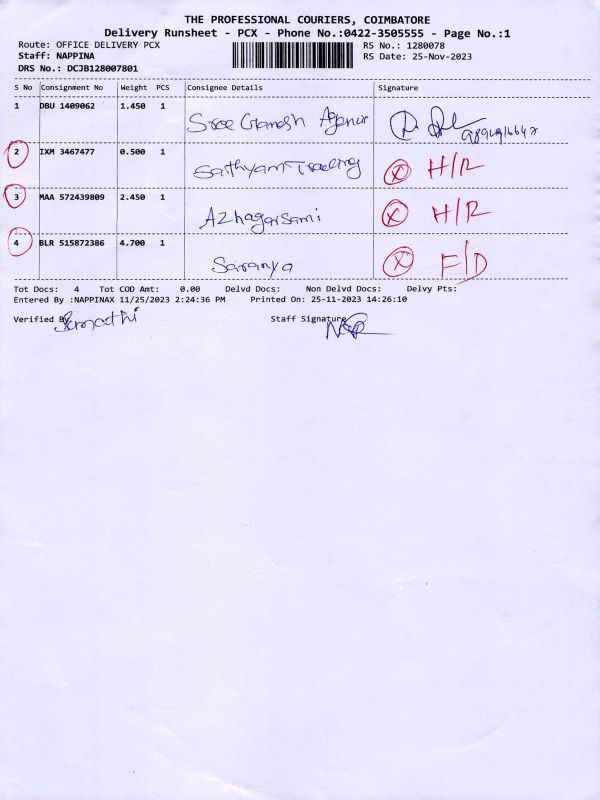 THE PROFESSIONAL COURIERS, COIMBATORE
Delivery Runsheet - PCX - Phone No.:0422-3505555 - Page No.:1
Route: OFFICE DELIVERY PCX
RS No.: 1280078
Staff: NAPPINA
RS Date: 25-Nov-2023
DRS No.: DCJB128007801
S No Consignment No Weight PCS Consignee Details Signature
1 DBU 1409062 1.450 1 Sree Ganesh
2 IXM 3467477 0.500 1 Sathyam Trading X H/R
3 MAA 572439809 2.450 1 Azhagarsami X H/R
4 BLR 515872386 4.700 1 Saranya X F/D
Tot Docs: 4 Tot COD Amt: 0.00 Delvd Docs: Non Delvd Docs: Delvy Pts:
Entered By :NAPPINAX 11/25/2023 2:24:36 PM Printed On: 25-11-2023 14:26:10
Verified By Staff Signature